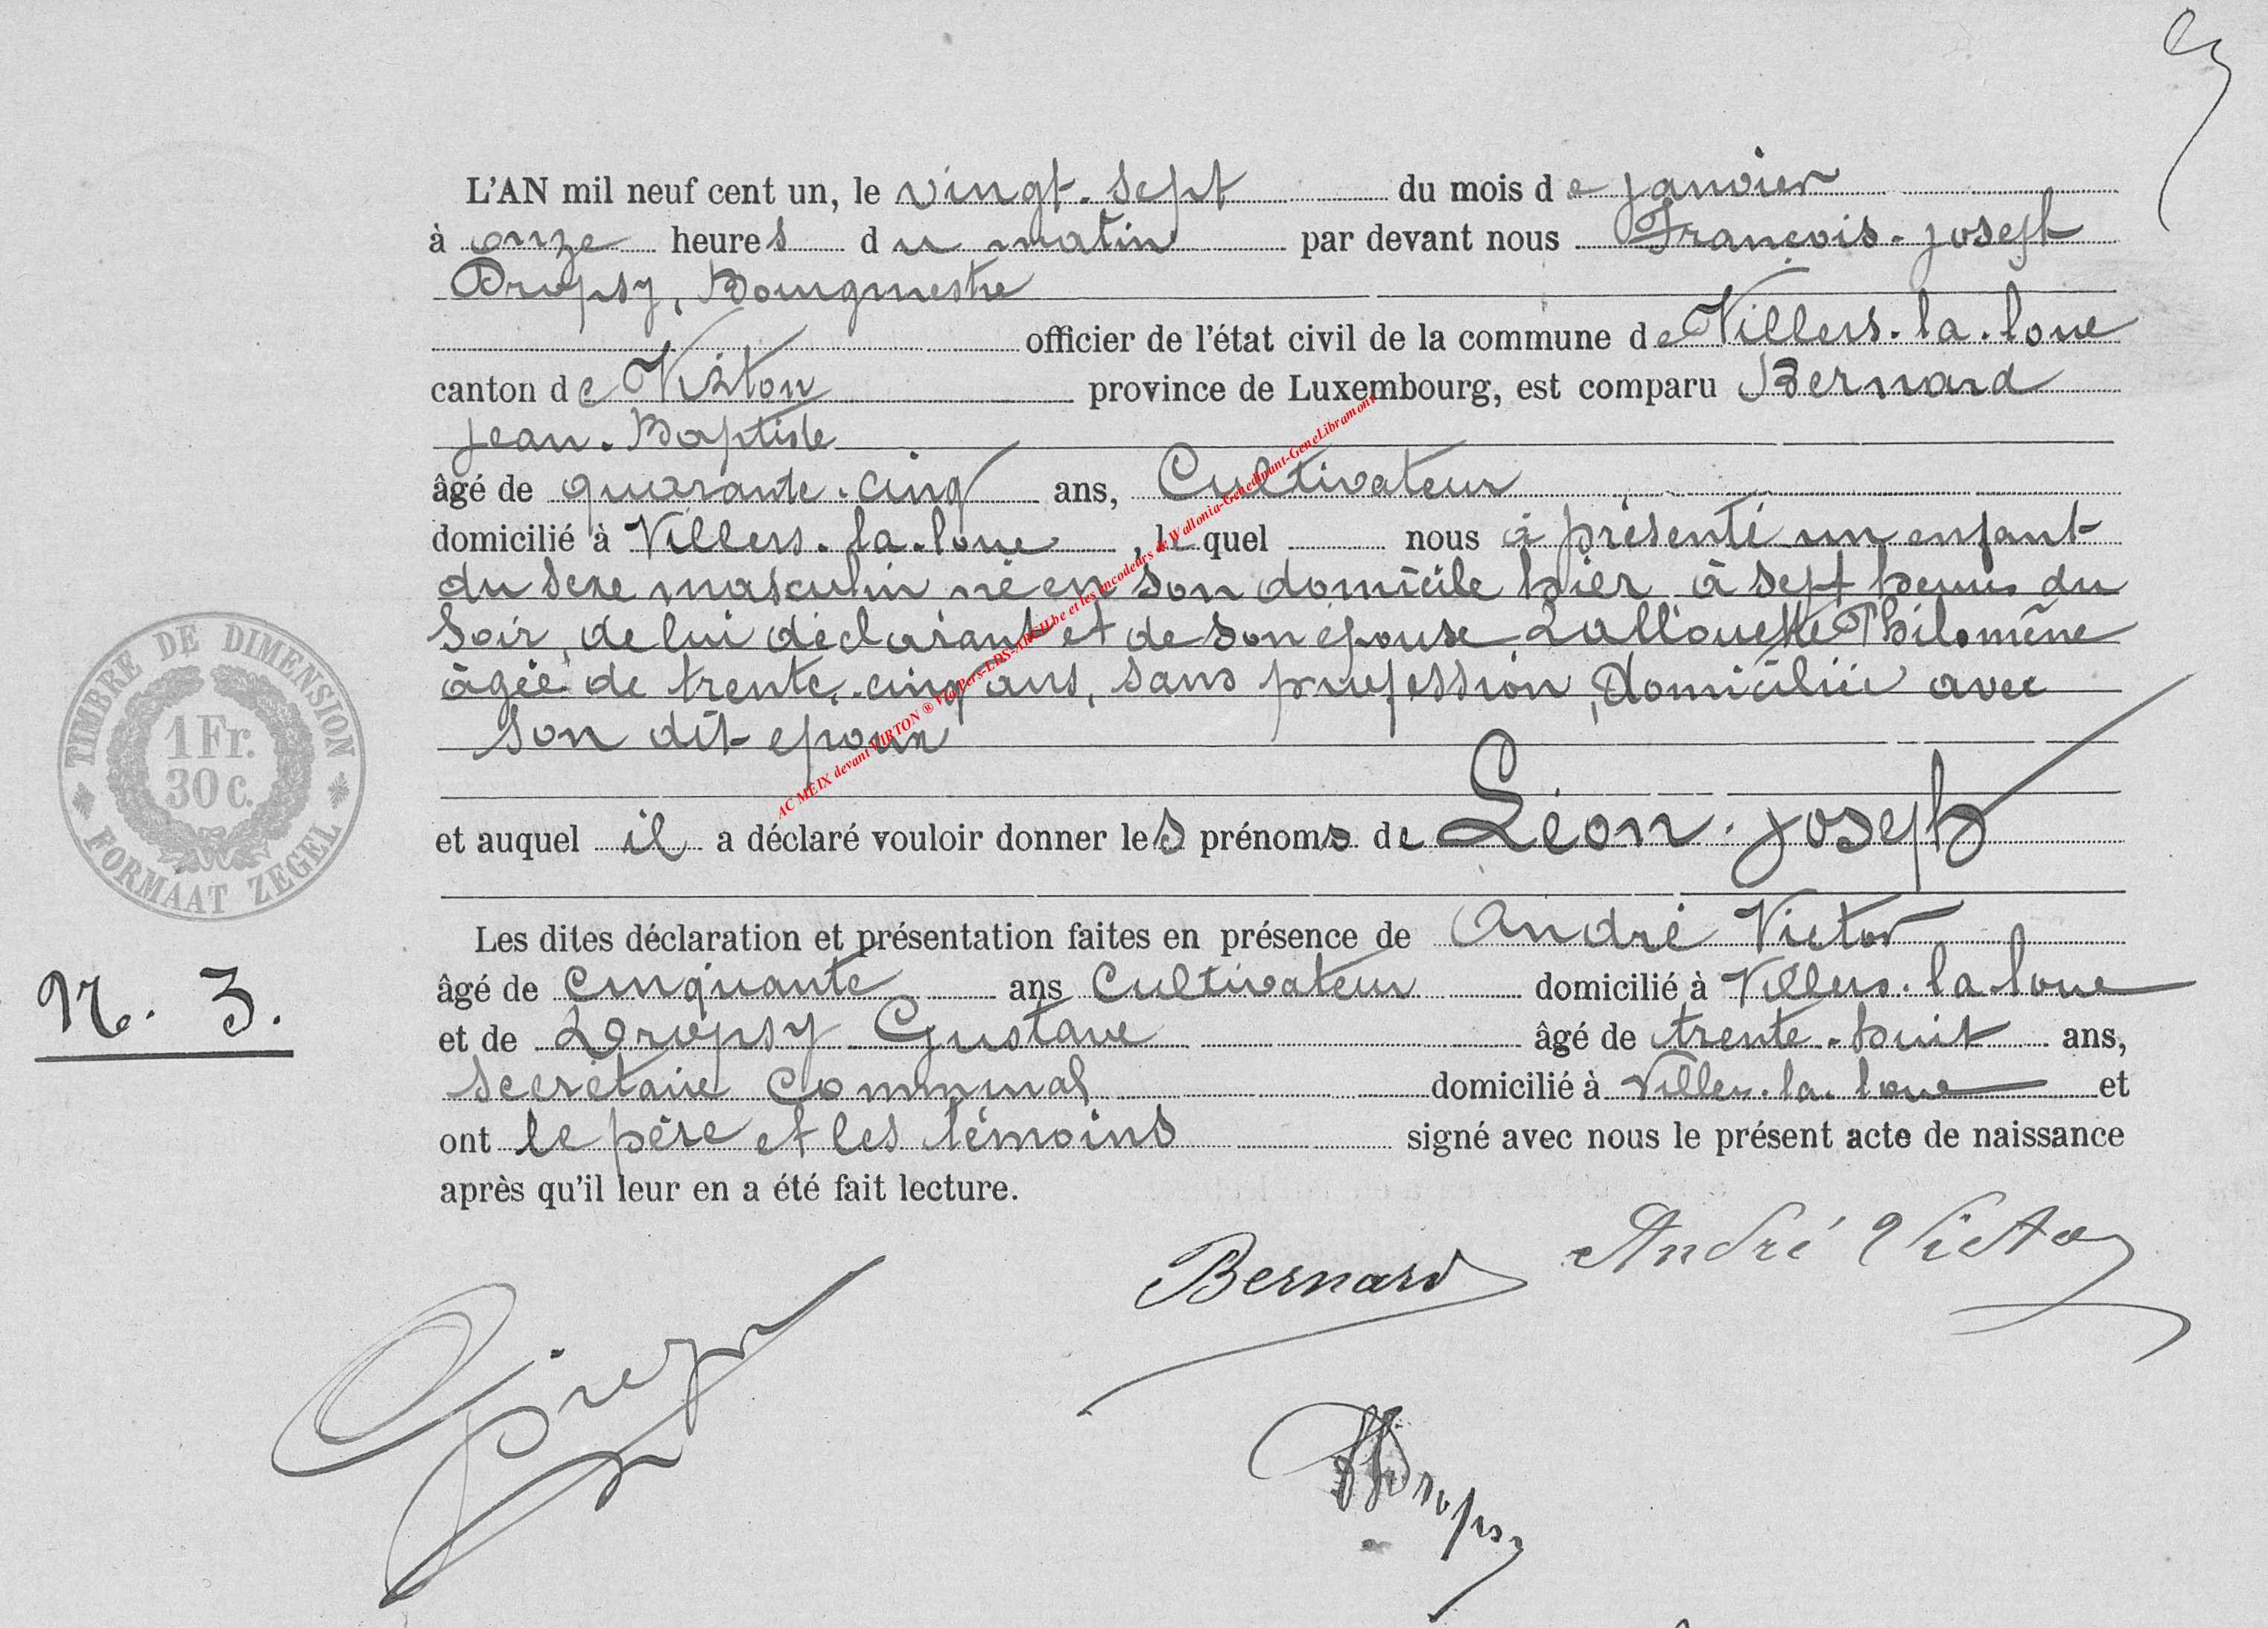 L'AN mil neuf cent un, le vingt-sept du mois de janvier
à onze heures du matin par devant nous François-joseph
Dropsy, Bourgmestre
officier de l'état civil de la commune de Villers-la-loue
canton de Virton province de Luxembourg, est comparu Bernard
jean-Baptiste
âgé de quarante-cinq ans, Cultivateur
domicilié à Villers-la-loue, lequel nous a présenté un enfant
du sexe masculin né en son domicile hier à sept heures du
soir, de lui déclarant et de son épouse Lallouette Philomène
âgée de trente-cinq ans, sans profession, domiciliée avec
son dit epoux
et auquel il a déclaré vouloir donner les prénoms de Léon-joseph
Les dites déclaration et présentation faites en présence de André Victor
âgé de Cinquante ans Cultivateur domicilié à Villers-la-loue
et de Dropsy Gustave âgé de trente-huit ans,
secrétaire Communal domicilié à Villers-la-loue et
ont le père et les témoins signé avec nous le présent acte de naissance
après qu'il leur en a été fait lecture.
TIMBRE DE DIMENSION
1 Fr.
30 c.
FORMAAT ZEGEL
N. 3.
Bernard
André Victor
Dropsy
AC MEIX devant VIRTON ® Via Pers-LDS-ARCH.be et les encodeurs de Wallonia-Genedinant-GeneLibramont